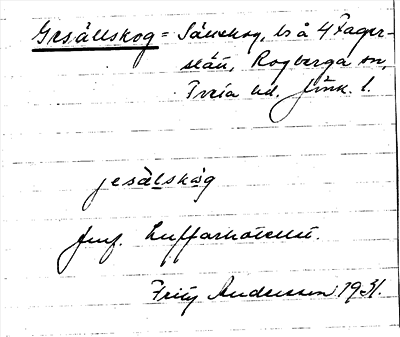 Gesällskog = Sämskog, bs å 4 Fager-
slätt, Rogberga sn,
Tveta hd. Jönk. l.
jesälskog
Jmf. Luffarhotellet.
Fritz Andersson 1931.